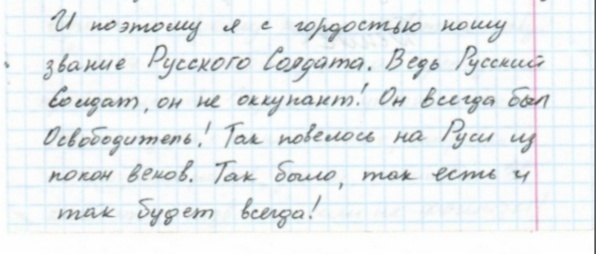 И поэтому я с гордостью ношу
звание Русского Солдата. Ведь Русский
Солдат, он не оккупант! Он всегда был
Освободитель! Так повелось на Руси из
покон веков. Так было, так есть и
так будет всегда!